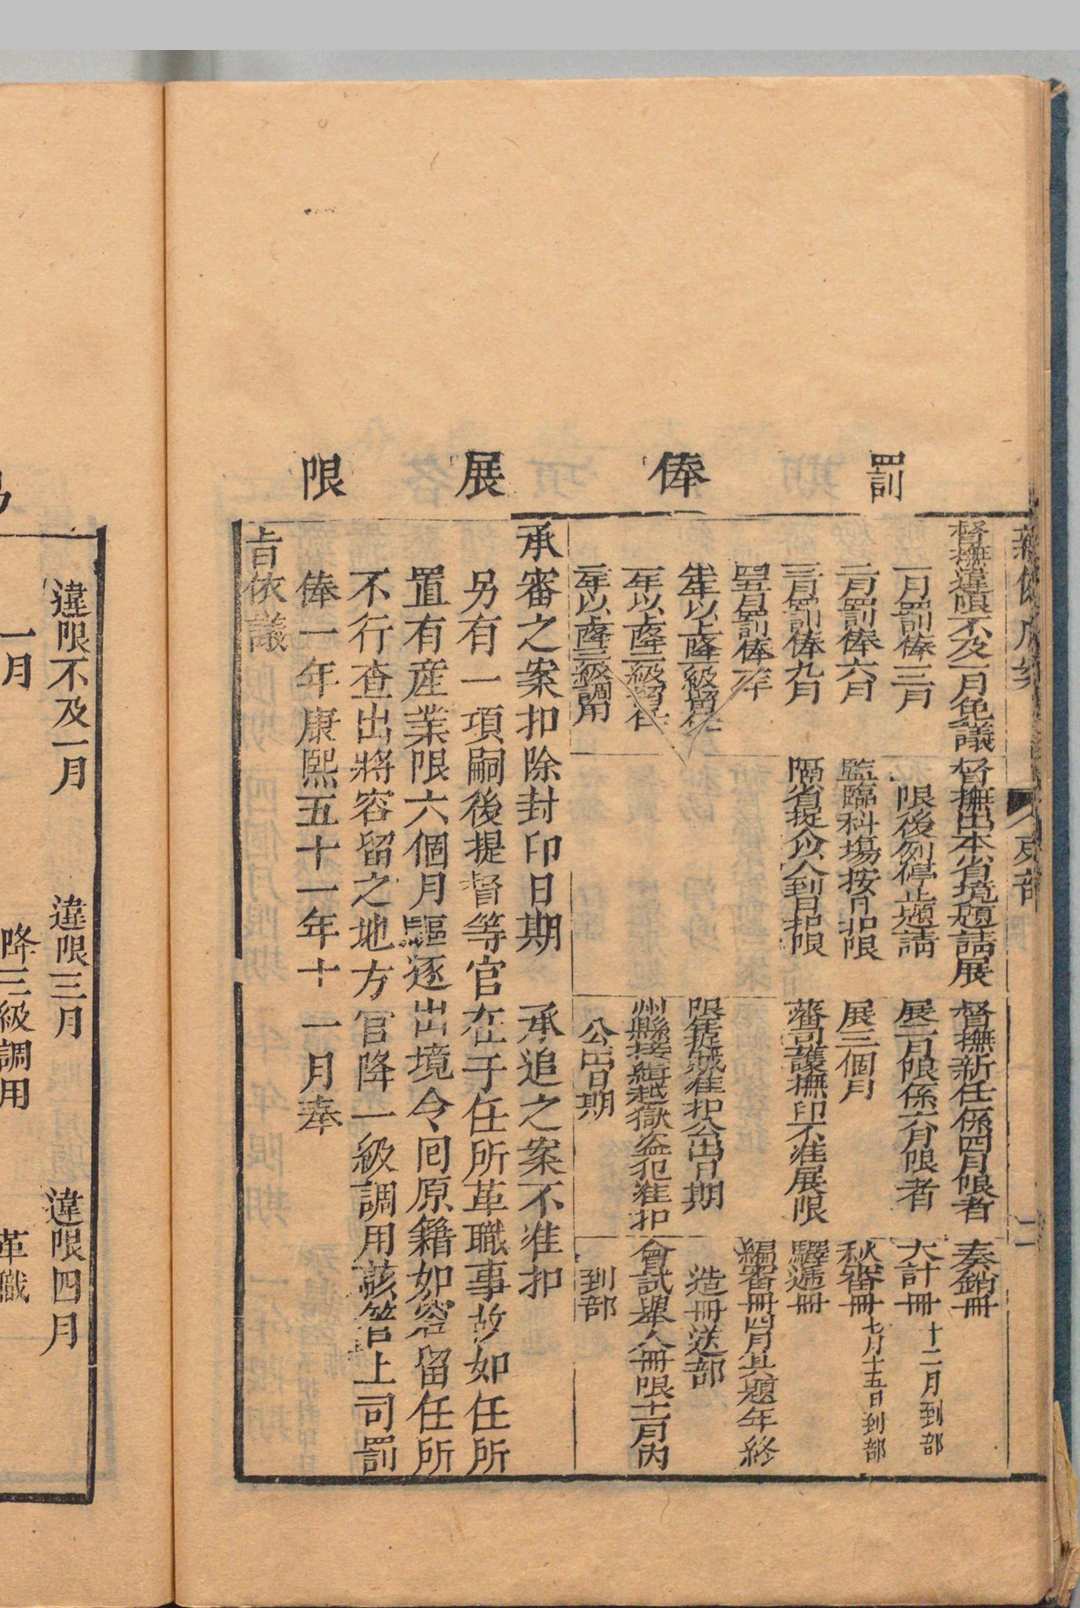 罰俸展限
督撫違限不及一月免議
一月罰俸三月
二月罰俸六月
三月罰俸九月
四五月罰俸一年
半年以上降一級留任
一年以上降二級留任
二年以上降三級調用
督撫出本省境題請展
限後例停止題請
監臨科場按月扣限
隔省提人到日扣限
督撫新任係四月限者
展二月限係六月限者
展三個月
藩司護撫印不准展限
限
准扣公出日期
州縣接緝越獄盜犯准扣
公出日期
奏銷冊
大計冊十二月到部
秋審冊七月十五日到部
驛遞冊
編審冊四月具題年終
造冊送部
會試舉人冊限十一月內
到部
承審之案扣除封印日期 承追之案不准扣
另有一項嗣後提督等官在于任所革職事故如任所
置有産業限六個月驅逐出境令回原籍如容留任所
不行查出將容留之地方官降一級調用該管上司罰
俸一年康熙五十一年十一月奉
旨依議
違限不及一月
違限三月
違限四月
一月
降三級調用
革職